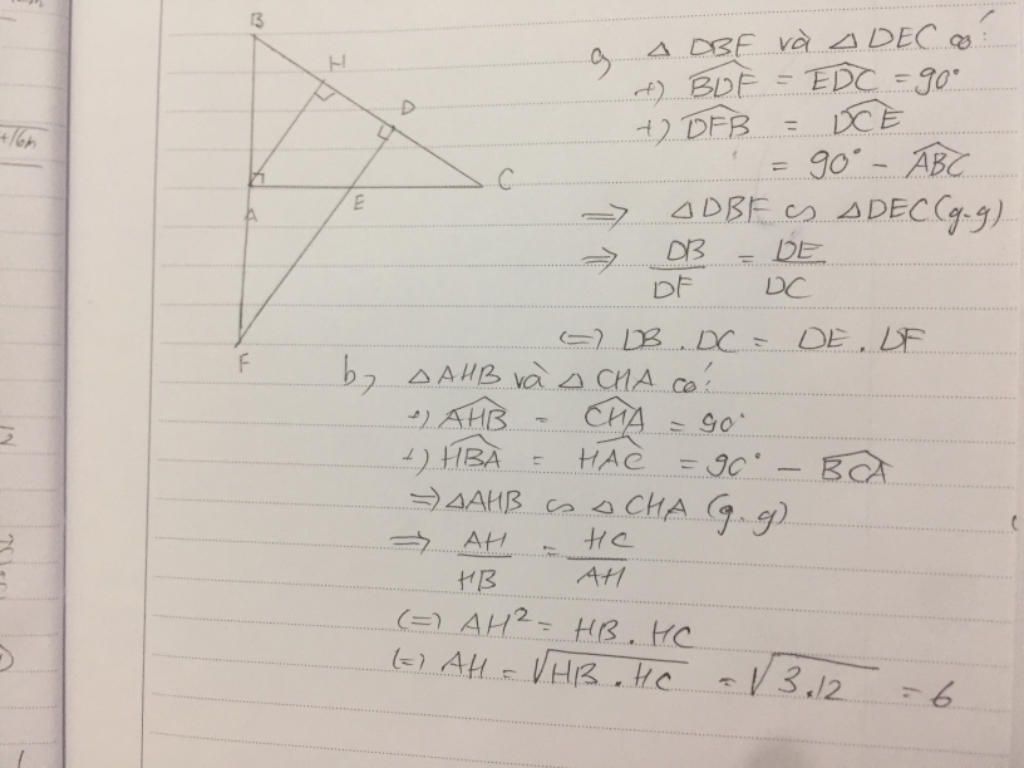 B
H
D
C
A
E
F
a, Δ DBF và Δ DEC có:
+) BDF = EDC = 90°
+) DFB = DCE
= 90° - ABC
=> Δ DBF ∽ Δ DEC (g-g)
=> DB/DF = DE/DC
(=) DB . DC = DE . DF
b, Δ AHB và Δ CHA có:
+) AHB = CHA = 90°
+) HBA = HAC = 90° - BCA
=> Δ AHB ∽ Δ CHA (g.g)
=> AH/HB = HC/AH
(=) AH² = HB . HC
(=) AH = √HB . HC = √3.12 = 6